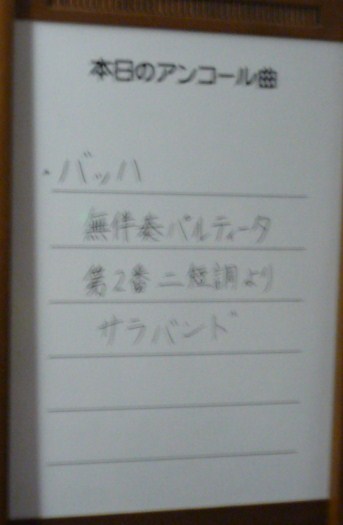 本日のアンコール曲
・バッハ
無伴奏パルティータ
第2番ニ短調より
サラバンド